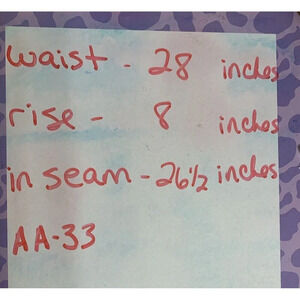 waist - 28 inches
rise - 8 inches
in seam - 26½ inches
AA-33